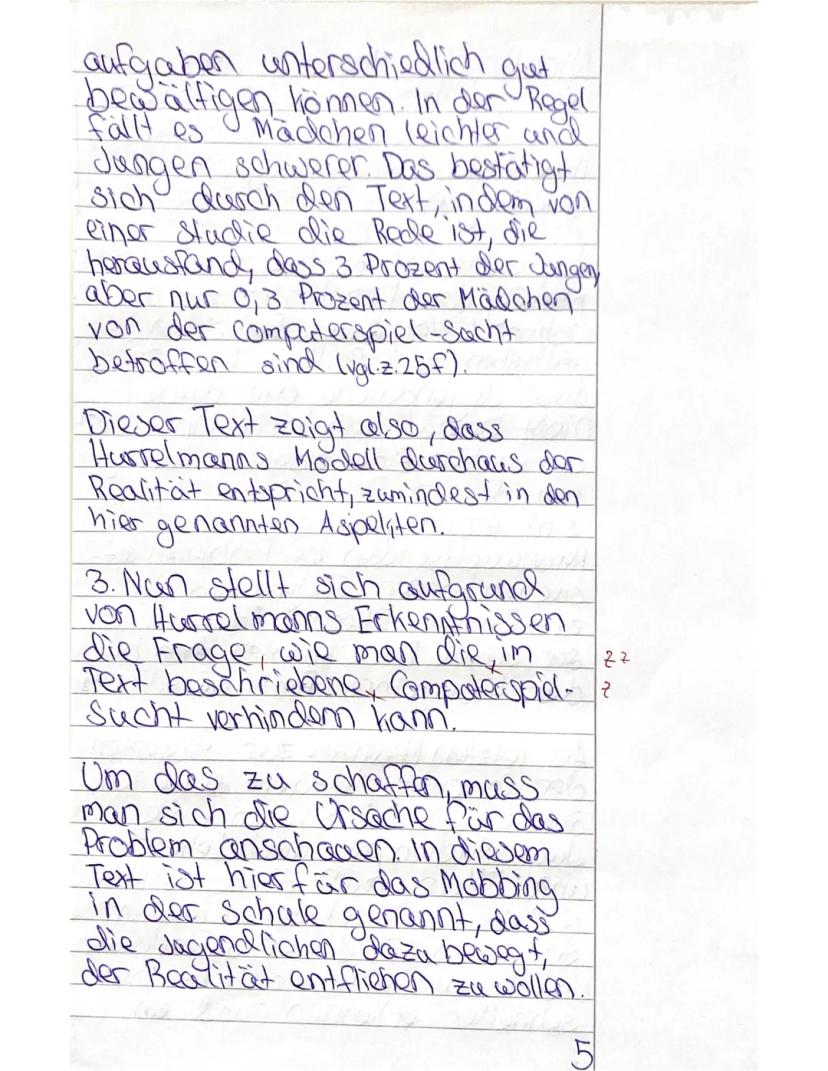 aufgaben unterschiedlich gut
bewältigen können. In der Regel
fällt es Mädchen leichter und
Jungen schwerer. Das bestätigt
sich durch den Text, indem von
einer Studie die Rede ist, die
herausfand, dass 3 Prozent der Jungen,
aber nur 0,3 Prozent der Mädchen
von der Computerspiel-Sucht
betroffen sind (vgl.z.25f).
Dieser Text zeigt also, dass
Hurrelmanns Modell durchaus der
Realität entspricht, zumindest in den
hier genannten Aspekten.
3. Nun stellt sich aufgrund
von Hurrelmanns Erkenntnissen
die Frage, wie man die, in
Text beschriebene, Computerspiel-
Sucht verhindern kann.
Um das zu schaffen, muss
man sich die Ursache für das
Problem anschauen. In diesem
Text ist hierfür das Mobbing
in der Schule genannt, dass
die Jugendlichen dazu bewegt,
der Realität entfliehen zu wollen.
5